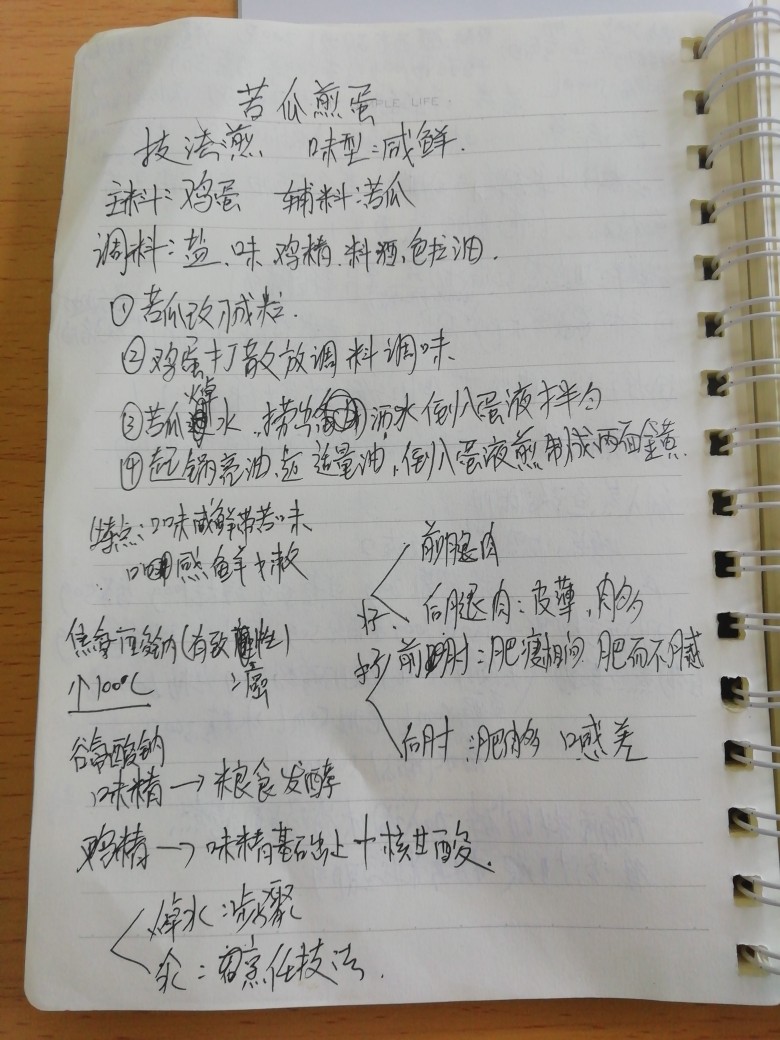 苦瓜煎蛋
PLE LIFE
技法:煎 味型:咸鲜.
主料:鸡蛋 辅料:苦瓜
调料:盐、味、鸡精、料酒、色拉油.
①苦瓜改刀成粒.
②鸡蛋打散放调料调味
③苦瓜焯水,捞出 洒水倒入蛋液拌匀
④起锅亮油,起适量油,倒入蛋液煎制成两面金黄.
特点:口味咸鲜带苦味
口 感鲜嫩
前腿肉
好、后腿肉:皮薄,肉多
焦谷 酸钠(有致 性)
癌
好 前肘:肥瘦相间 肥而不腻
个100℃
后肘:肥肉多 口感差
谷氨酸钠
味精→粮食发酵
鸡精→味精基础上+核苷酸.
焯水:步骤
氽:烹饪技法.